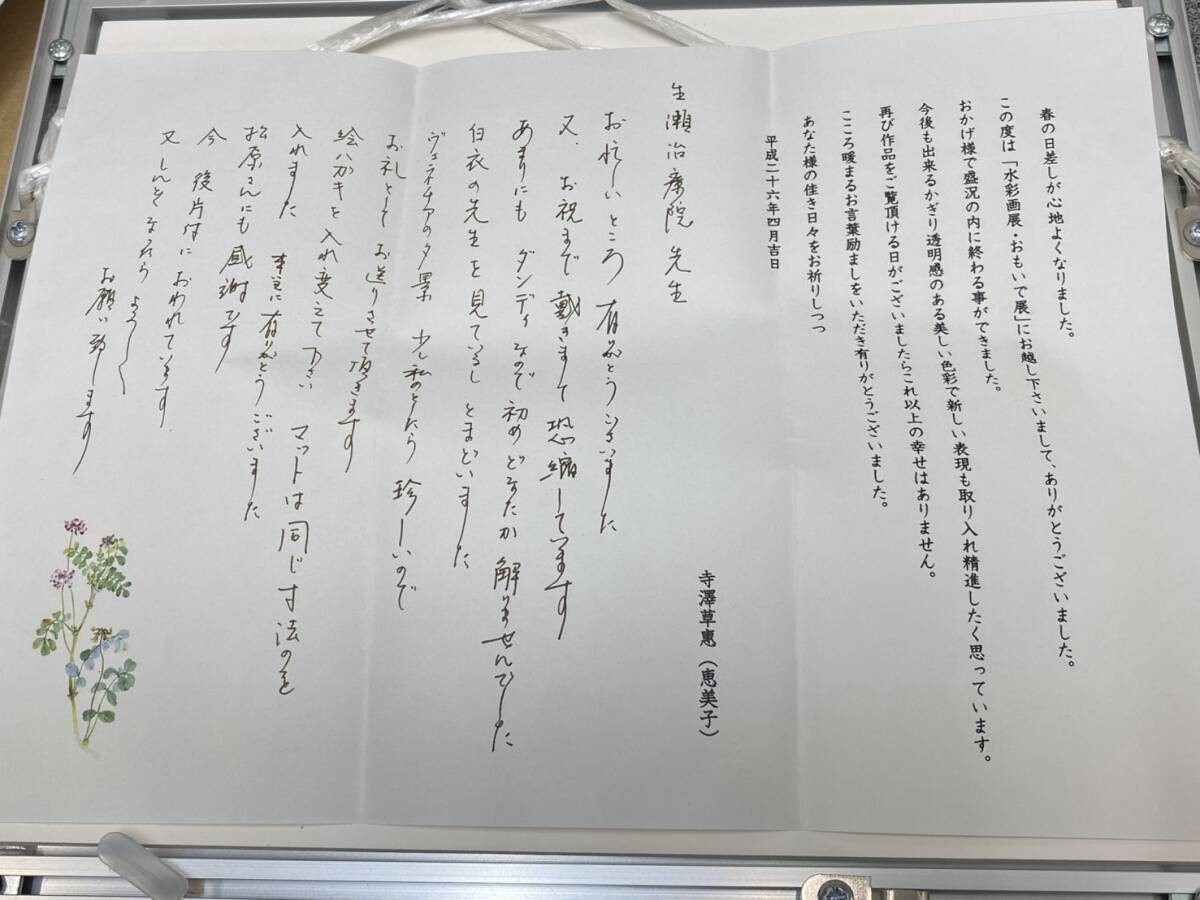 春の日差しが心地よくなりました。
この度は「水彩画展・おもいで展」にお越し下さいまして、ありがとうございました。
おかげ様で盛況の内に終わる事ができました。
今後も出来るかぎり透明感のある美しい色彩で新しい表現も取り入れ精進したく思っています。
再び作品をご覧頂ける日がございましたらこれ以上の幸せはありません。
こころ暖まるお言葉励ましをいただき有りがとうございました。
あなた様の佳き日々をお祈りしつつ
平成二十六年四月吉日
寺澤草惠（恵美子）
生瀬治療院 先生
お忙しいところ 有難とうございました
又、お祝まで戴きまして恐縮しています
あまりにも ダンディなので初めどなたか解りませんでした
白衣の先生を見ているし とまどいました
ヴェネチアの夕景 少し私のとしたら 珍しいので
お礼として お送りさせて頂きます
絵ハガキを入れ変えて下さい マットは同じ寸法のを
入れました 本当に有難とうございました
松原さんにも感謝です
今 後片付に おわれています
又 しんどくなったら よろしく
お願い致します